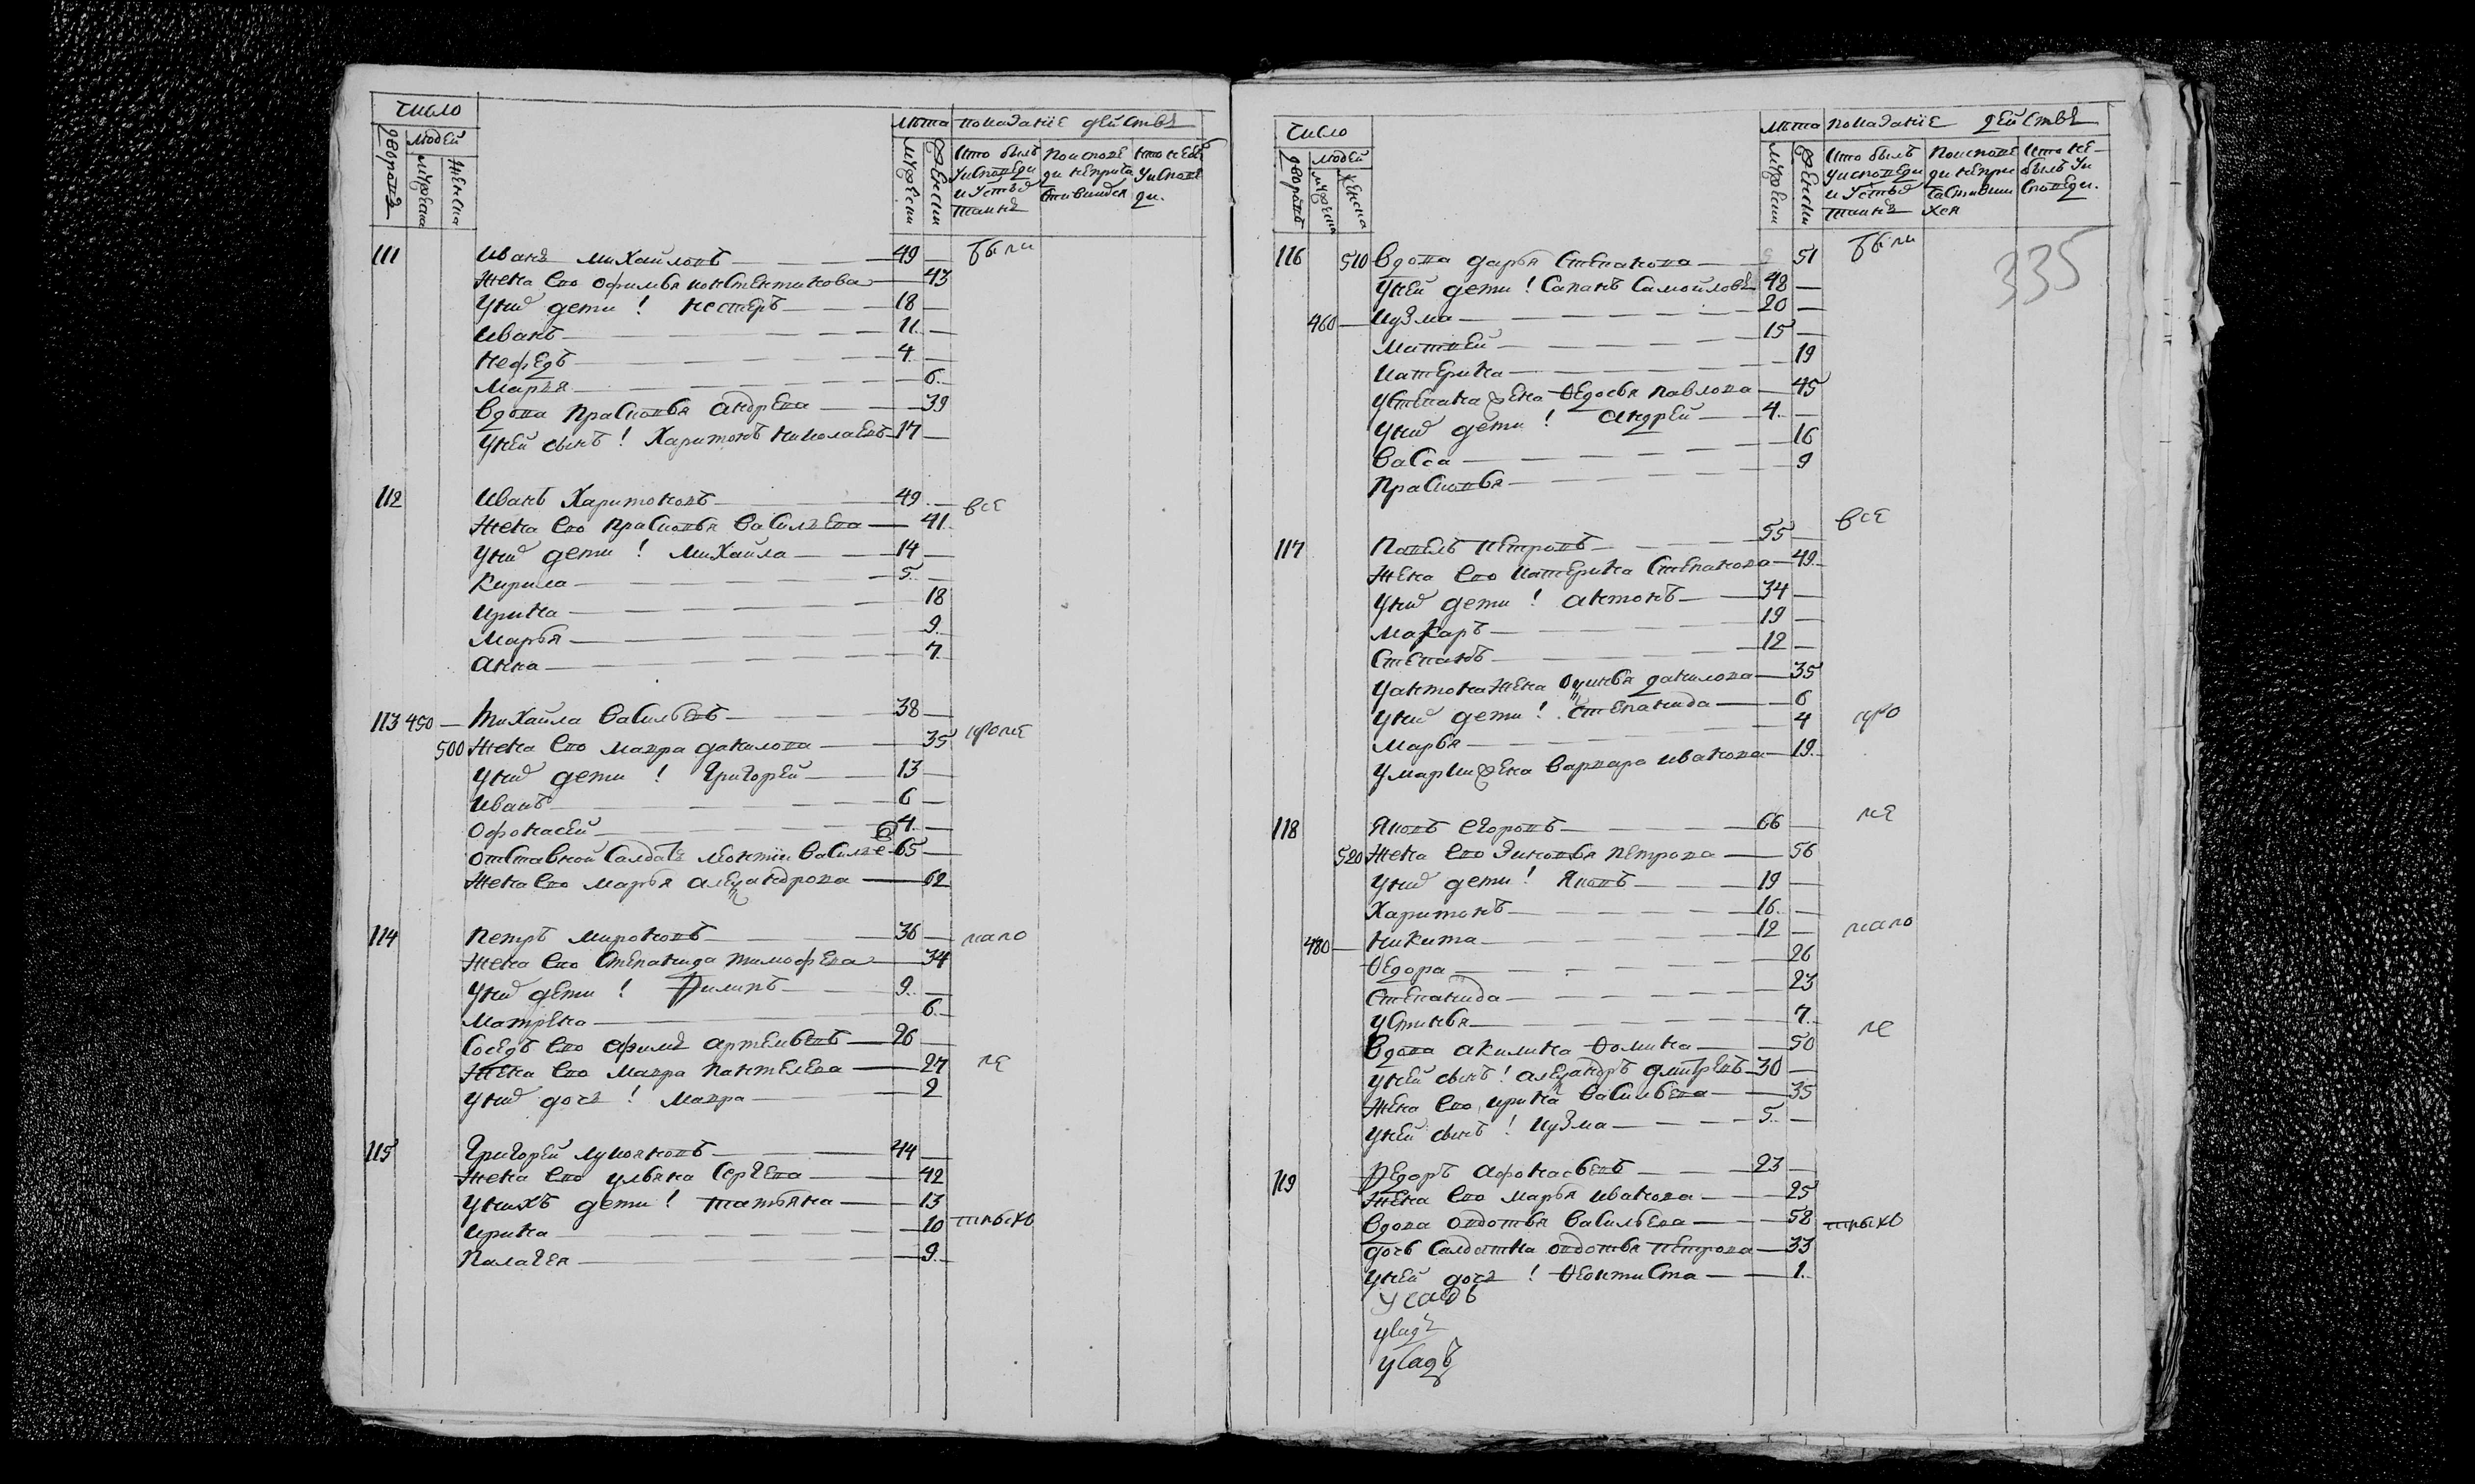 число
людей
дворовъ
мужеска
женска
лѣта
показанїе действъ
мужески
женски
кто былъ у исповеди и у стыя таинъ
по исповеди не причастившися
кто не бы у исповеди.
111 Иванъ Михайловъ 49 были
Жена его Офимья Констентинова 43
У них дети ! Нестеръ 18
Иванъ 11
Нефедъ 4
Марья 6
Вдова Прасковья Андрева 39
У ней сынъ ! Харитонъ Николаевъ 17
112 Иванъ Харитоновъ 49 все
Жена его Прасковья Василева 41
У них дети ! Михайла 14
Кирила 5
Ирина 18
Марья 9
Анна 7
113 450 Михайла Васильевъ 38
500 Жена его Мавра Данилова 35 кроме
У них дети ! Григорей 13
Иванъ 6
Офонасей 4
отставной салдатъ Леонтїи Василье 65
Жена его Марья Алеѯандрова 62
114 Петръ Мироновъ 36 мало
Жена его Степанида Тимофева 34
У них дети ! Филипъ 9
Матрена 6
Соседъ его Афимъ Артемьевъ 26
Жена его Мавра Пантелева 27 ле
У них дочь ! Мавра 2
115 Григорей Лукояновъ 44
Жена его Ульяна Сергева 42
У нихъ дети ! Татьяна 13
Ирина 10 тныхъ
Палагея 9
число
людей
дворовъ
мужеска
женска
лѣта
показанїе действъ
мужески
женски
кто былъ у исповеди и у стыя таинъ
по исповеди не причастившихся
кто не былъ у исповеди.
335
116 510 Вдова Дарья Степанова 51 были
У ней дети ! Сапанъ Самойловъ 48
460 Кузма 20
Матвей 15
Катерина 19
У Степана жена Ѳедосья Павлова 45
У них дети ! Андрей 4
Васса 16
Прасковья 9
все
117 Павелъ Петровъ 55
Жена его Катерина Степанова 49
У них дети ! Антонъ 34
Макаръ 19
Степанъ 12
У Антона жена Оѯинья Данилова 35
У них дети ! Степанида 6
Марья 4 кро
У Марки жена Варвара Иванова 19
118 Яковъ Егоровъ 66 ме
520 Жена его Зиновья Петрова 56
У них дети ! Яковъ 19
Харитонъ 16
480 Никита 12 мало
Ѳедора 26
Степанида 23
Устинья 7
Вдова Акилина Ѳомина 50 ле
У ней сынъ ! Алеѯандръ Дмитревъ 30
Жена его Ирина Васильева 35
У ней сынъ ! Кузма 5
119 Федоръ Афонасьевъ 23
Жена его Марья Иванова 25
Вдова Овдотья Васильева 58 тныхъ
дочь салдатка Овдотья Петрова 33
У ней дочь ! Ѳеоктиста 1
усадъ
усадъ
усадъ